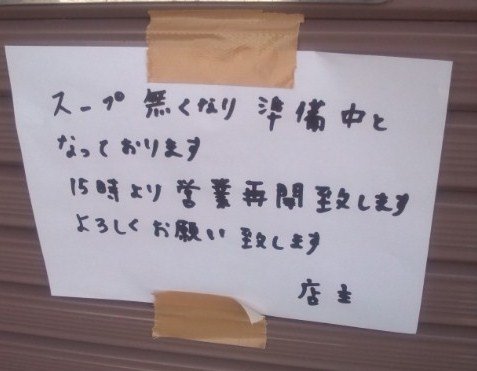 スープ 無くなり 準備中と
なっております
15時より営業再開致します
よろしくお願い致します
店主